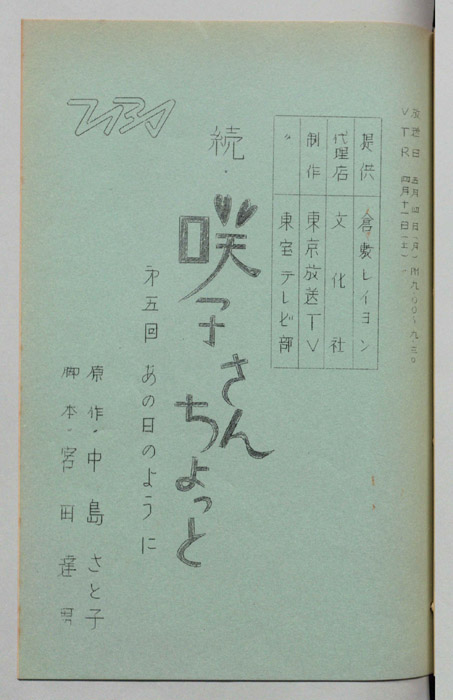 放送日 五月四日(月)
VTR 四月十一日(土)
提供 倉敷レイヨン
代理店 文化社
制作 東京放送TV
〃 東宝テレビ部
続・咲子さんちょっと
第五回 あの日のように
原作・中島さと子
脚本・宮田達男